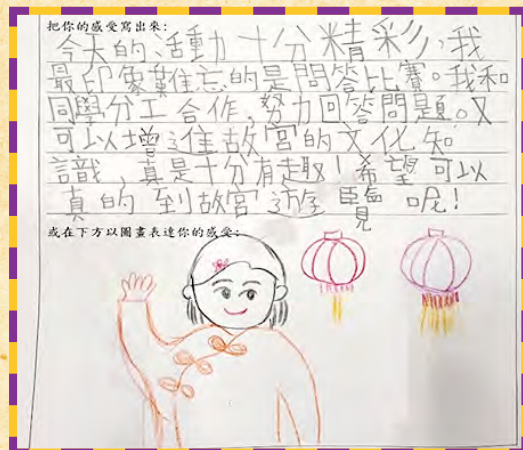 把你的感受寫出來:
今天的活動十分精彩,我
最印象難忘的是問答比賽。我和
同學分工合作,努力回答問題。又
可以增進故宮的文化知
識,真是十分有趣!希望可以
真的到故宮遊覽呢!
或在下方以圖畫表達你的感受: